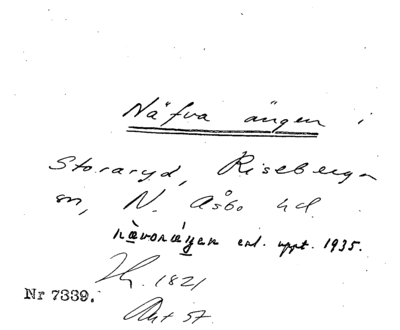 Näfva ängen i
Storaryd, Riseberga
sn, N. Åsbo hd.
nàvonáγen enl. uppt. 1935.
1821
Nr 7339.
Akt 57